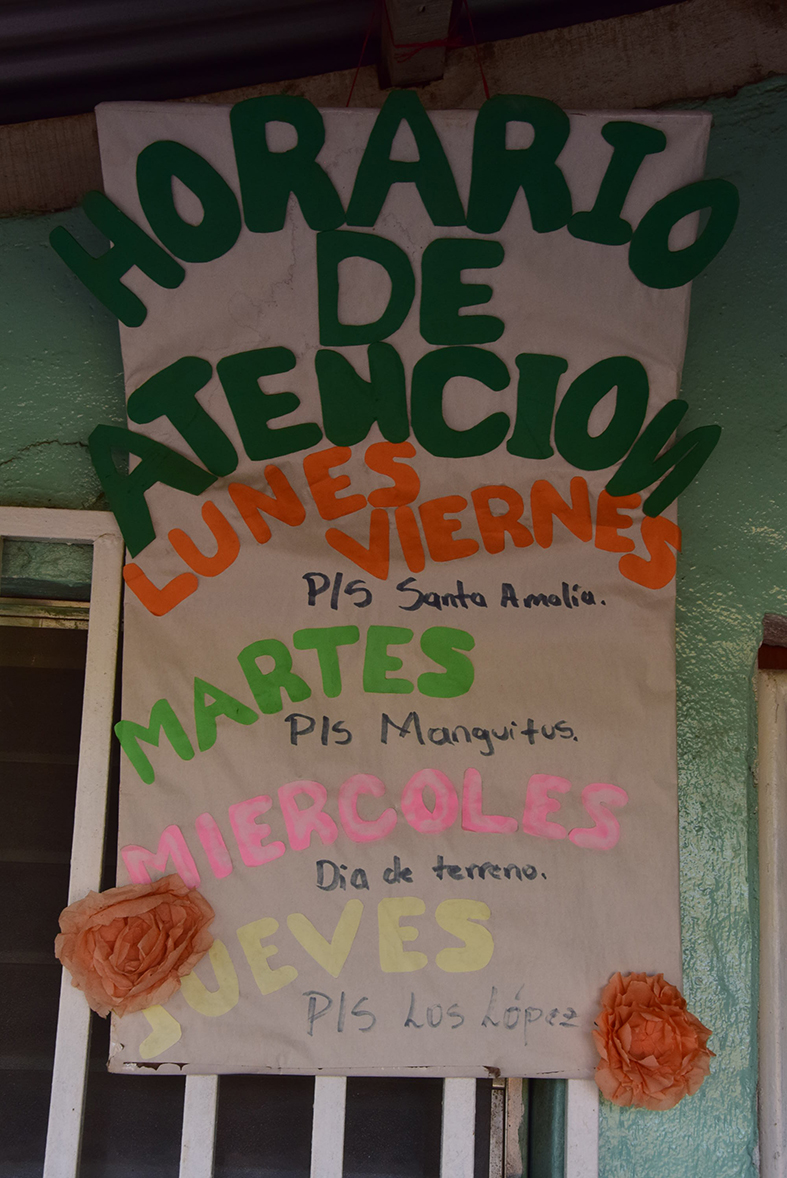 HORARIO
DE
ATENCION
LUNES
VIERNES
P/S Santa Amalia.
MARTES
P/S Manguitus.
MIERCOLES
Dia de terreno.
JUEVES
P/S Los López